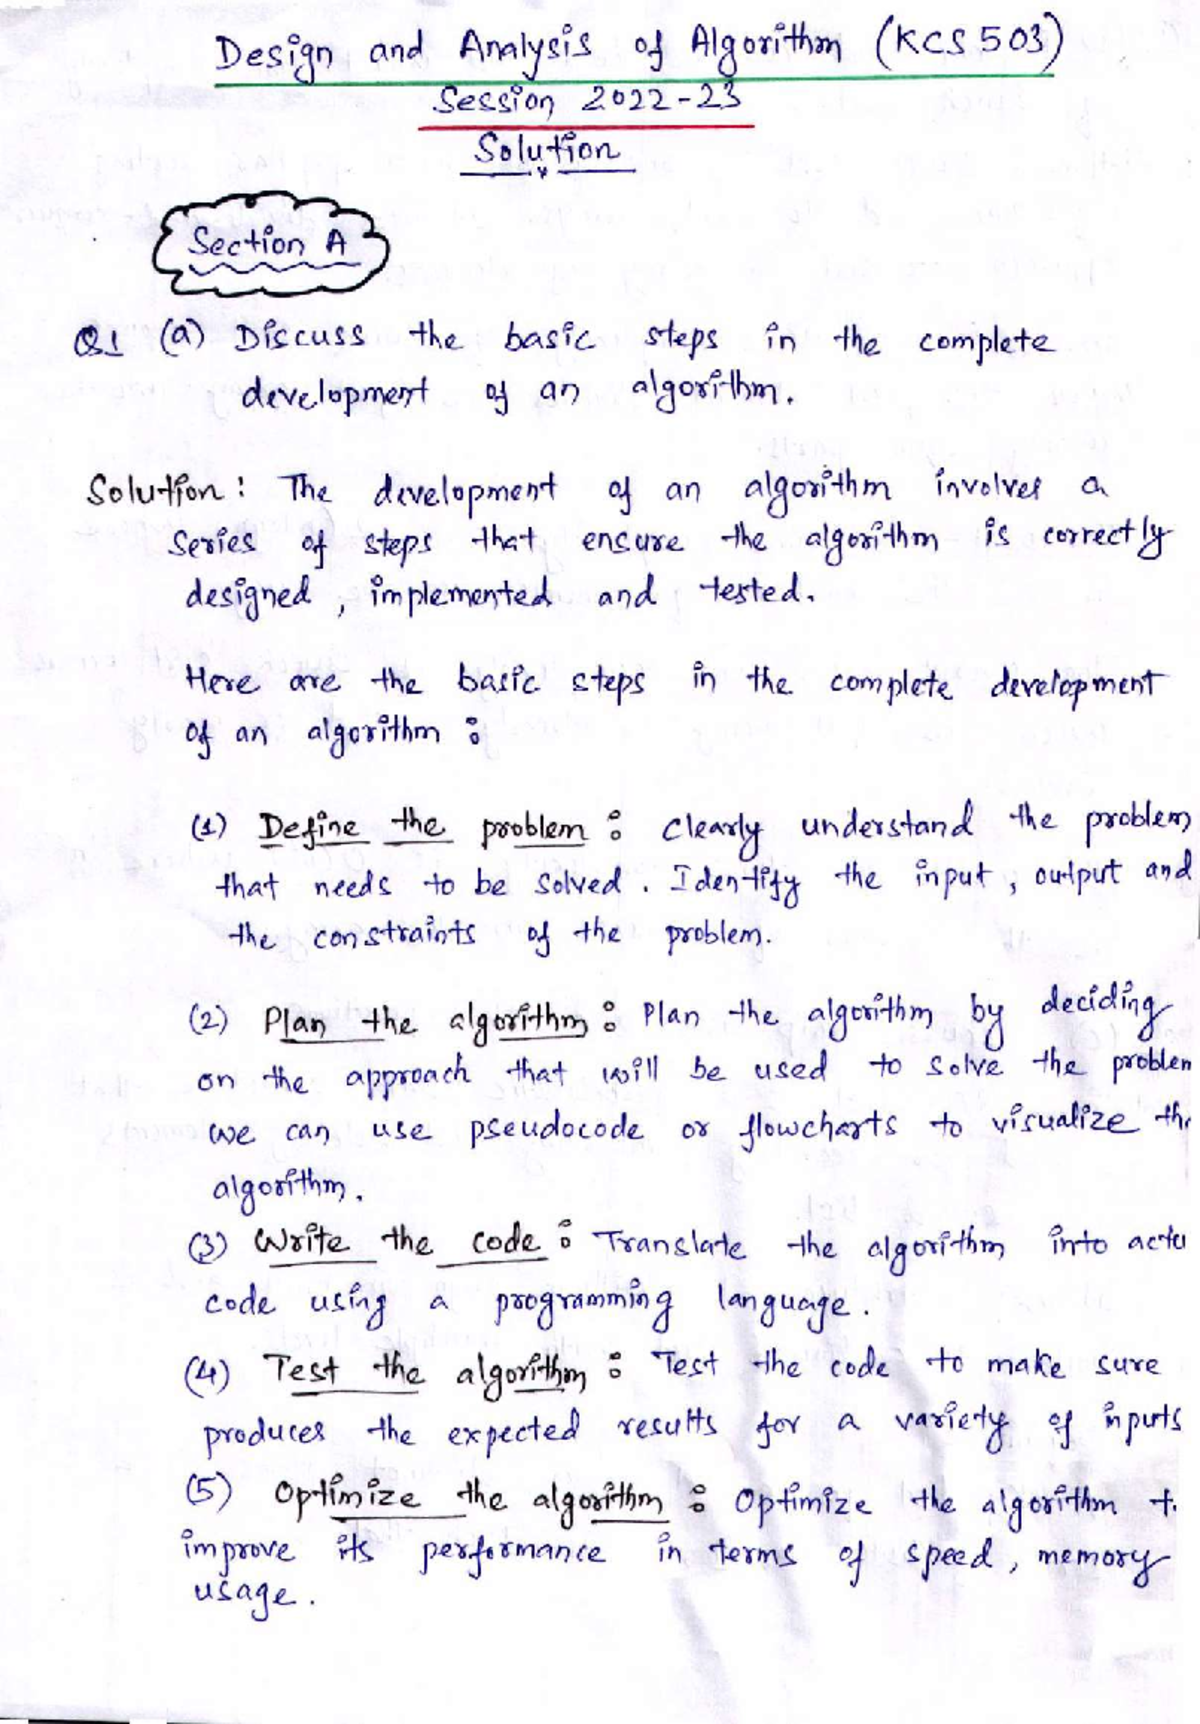 Design and Analysis of Algorithm (KCS503)
Session 2022-23
Solution
Section A
Q1 (a) Discuss the basic steps in the complete
development of an algorithm.
Solution: The development of an algorithm involves a
series of steps that ensure the algorithm is correctly
designed, implemented and tested.
Here are the basic steps in the complete development
of an algorithm :
(1) Define the problem : Clearly understand the problem
that needs to be solved. Identify the input, output and
the constraints of the problem.
(2) Plan the algorithm : Plan the algorithm by deciding
on the approach that will be used to solve the problem
we can use pseudocode or flowcharts to visualize the
algorithm.
(3) Write the code : Translate the algorithm into actu
code using a programming language.
(4) Test the algorithm : Test the code to make sure
produces the expected results for a variety of inputs
(5) Optimize the algorithm : Optimize the algorithm t
improve its performance in terms of speed, memory
usage.